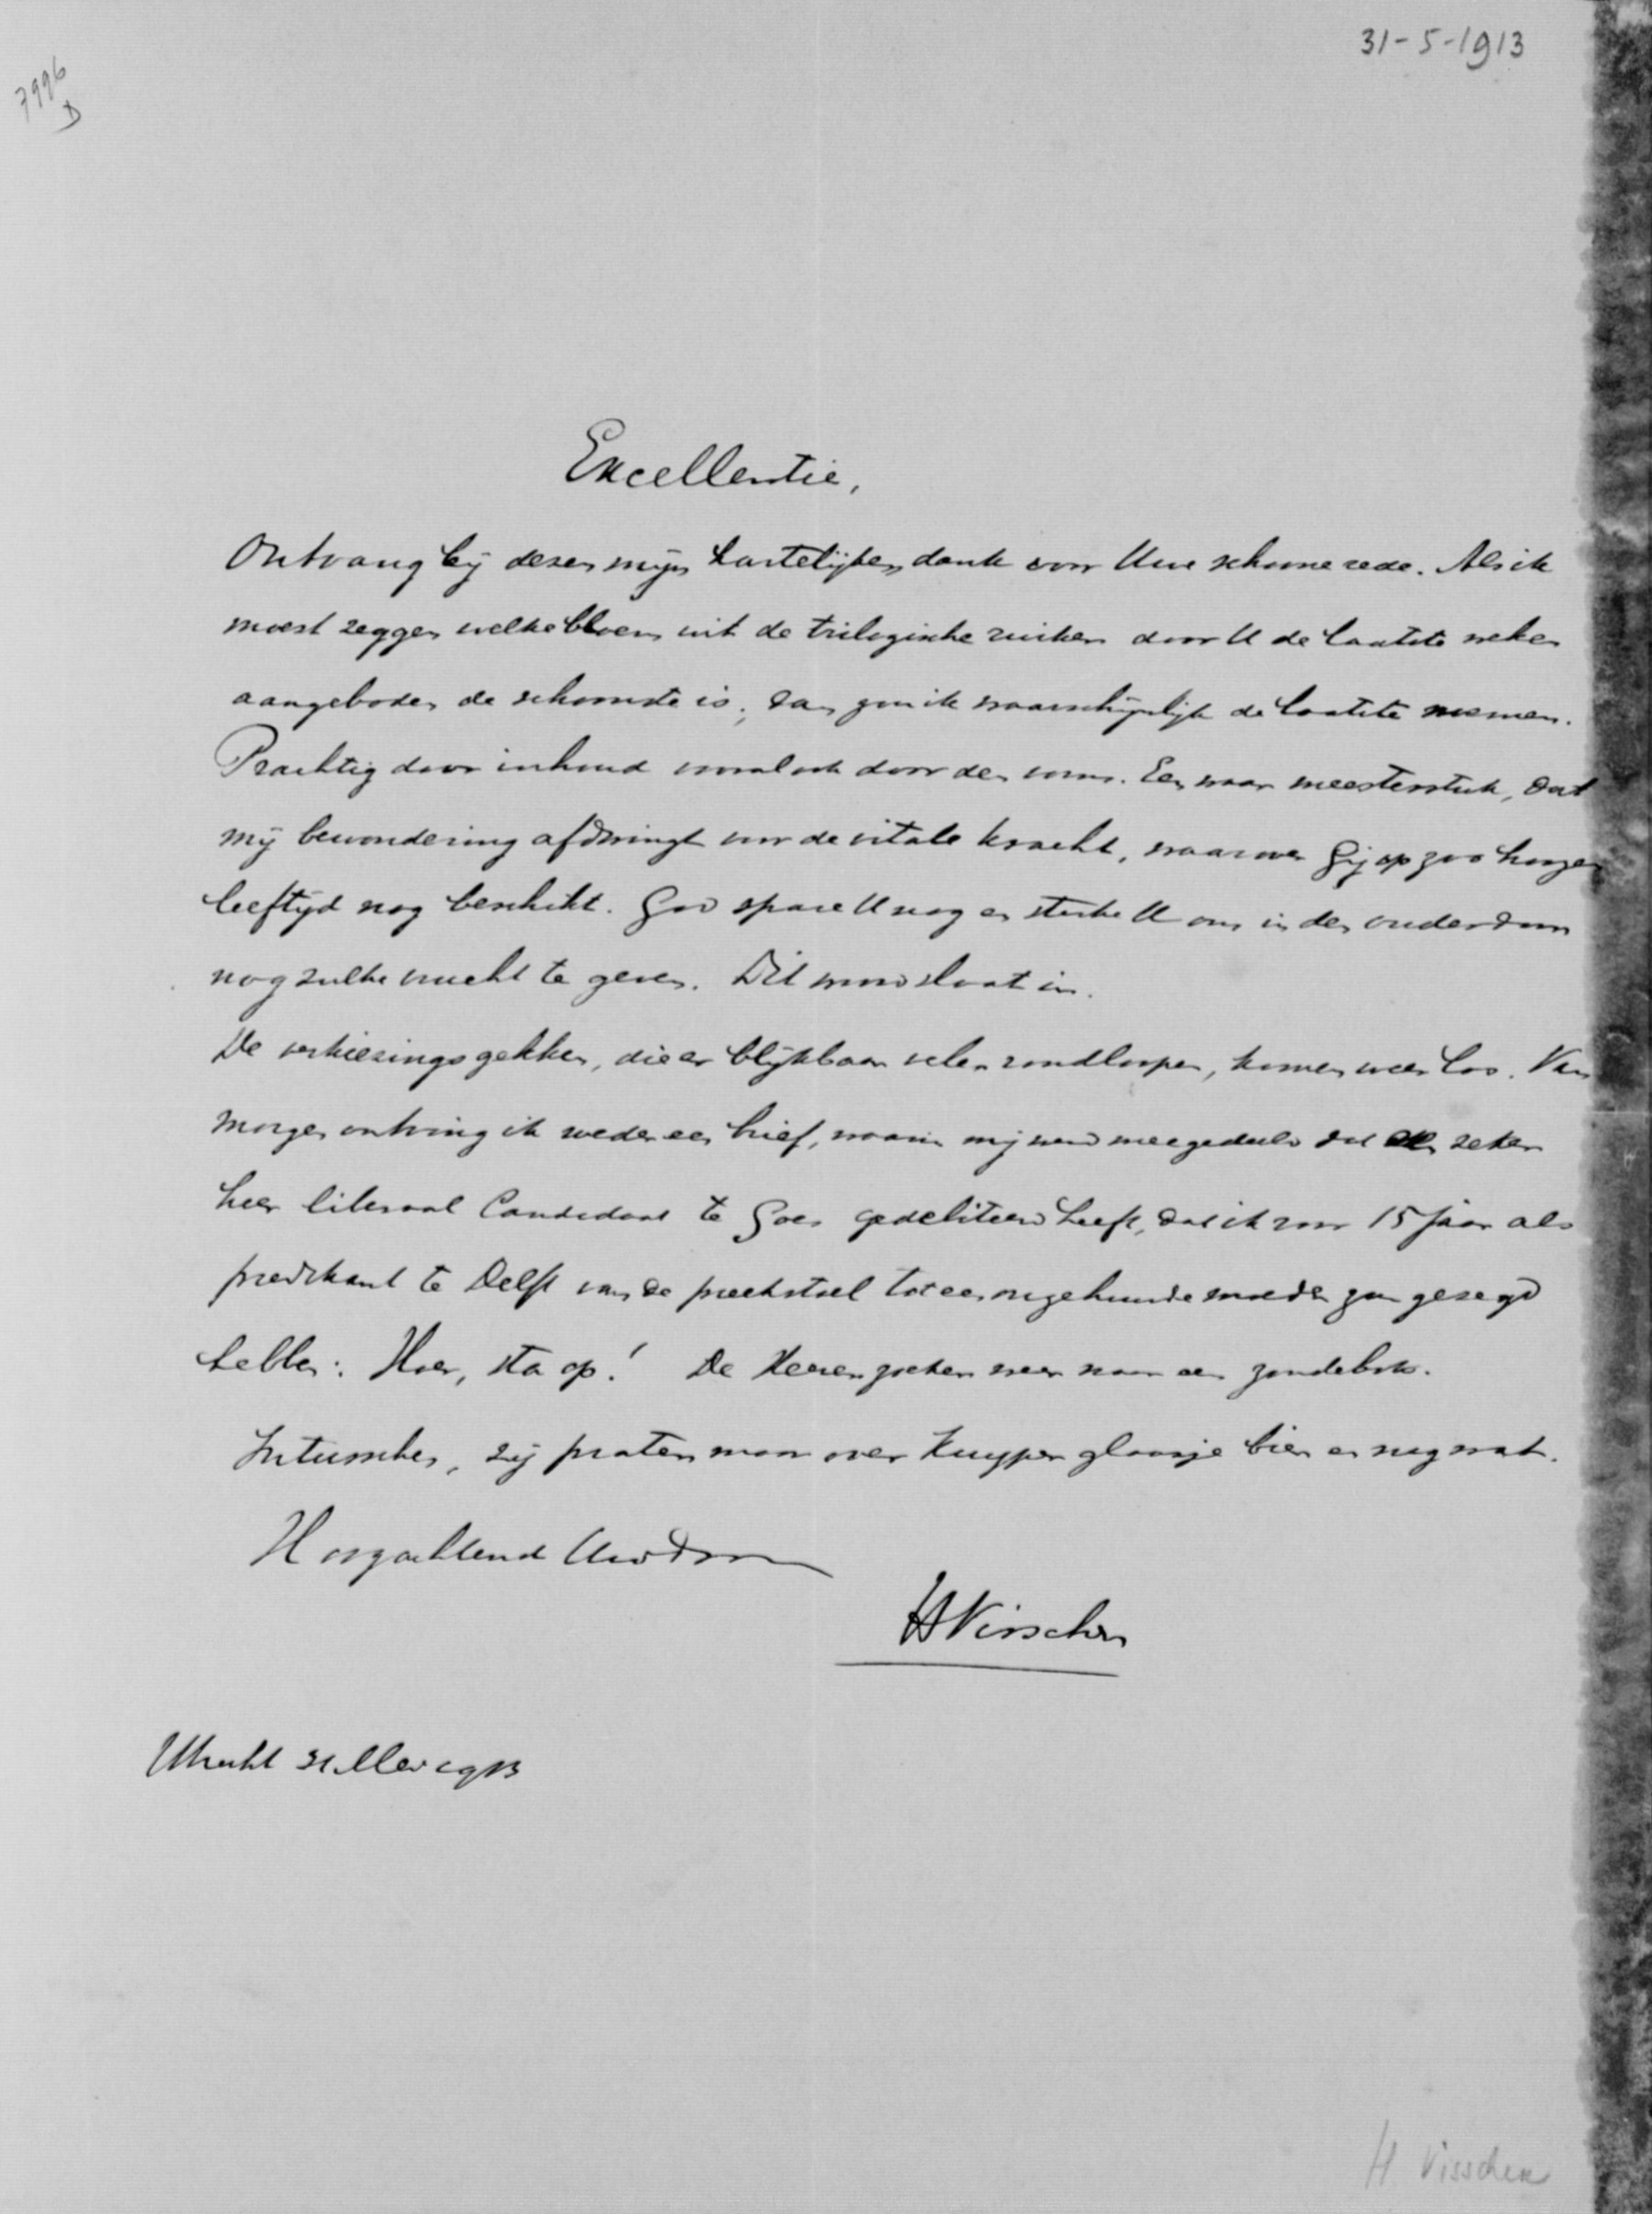 31-5-1913
7996
D
Excellentie,
Ontvang bij dezen mijn hartelijken dank voor Uwe schoone rede. Als ik
moest zeggen welke bloem uit de trilogische ruiker door U de laatste weken
aangeboden de schoonste is, dan zou ik waarschijnlijk de laatste noemen.
Prachtig door inhoud vooral ook door den vorm. Een waar meesterstuk, dat
mij bewondering afdwingt voor de vitale kracht, waarover Gij op zoo hoogen
leeftijd nog beschikt. God spare U nog en sterke U om in den ouderdom
nog zulke vrucht te geven. Dit woord slaat in.
De verkiezingsgekken, die er blijkbaar velen rondloopen, komen weer los. Van
morgen ontving ik weder een brief, waarin mij werd meegedeeld dat een zeker
heer liberaal Candidaat te Goes gedebiteerd heeft, dat ik voor 15 jaar als
predikant te Delft van de preekstoel tot een ongehuwde moeder zou gezegd
hebben: Hoer, sta op! De Heeren zoeken weer naar een zondebok.
Intusschen, zij praten maar over Kuyper glaasje bier en nog wat.
Hoogachtend Uw dw
H Visscher
Utrecht 31 Mei 1913
H. Visscher